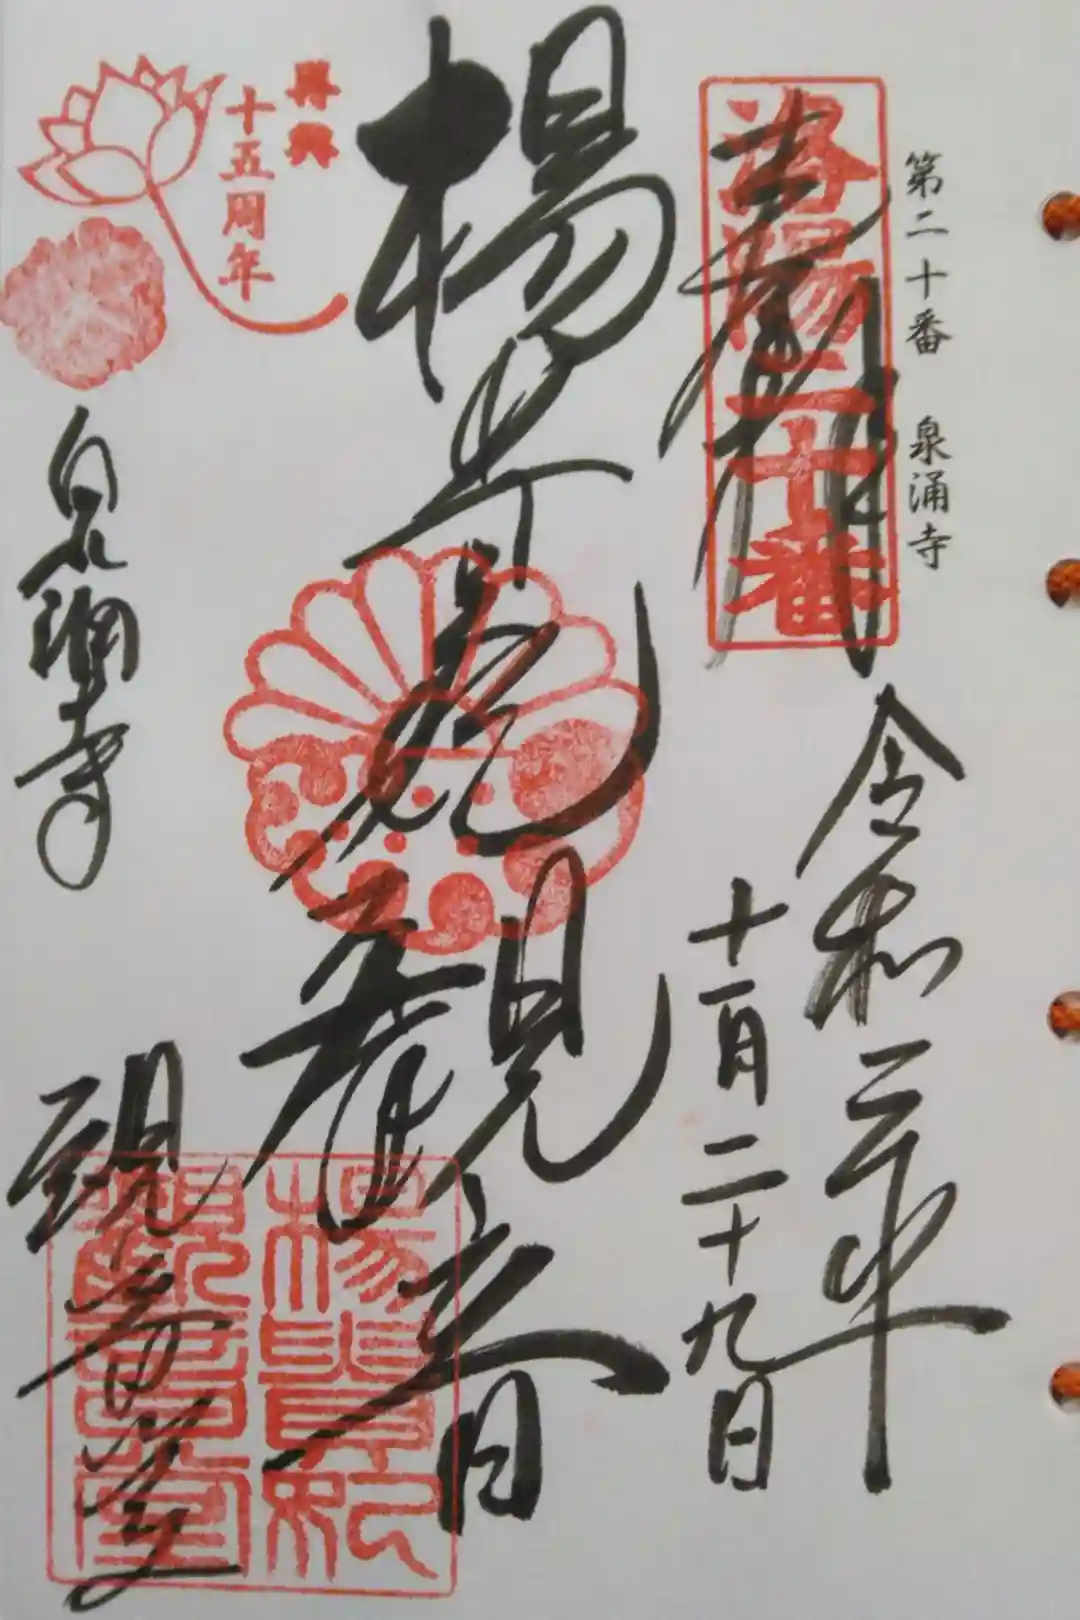 第二十番 泉涌寺
奉拝
洛陽二十番
令和二年
十一月二十九日
楊貴妃観音
再興
十五周年
泉涌寺
観音堂
楊貴妃
観音堂